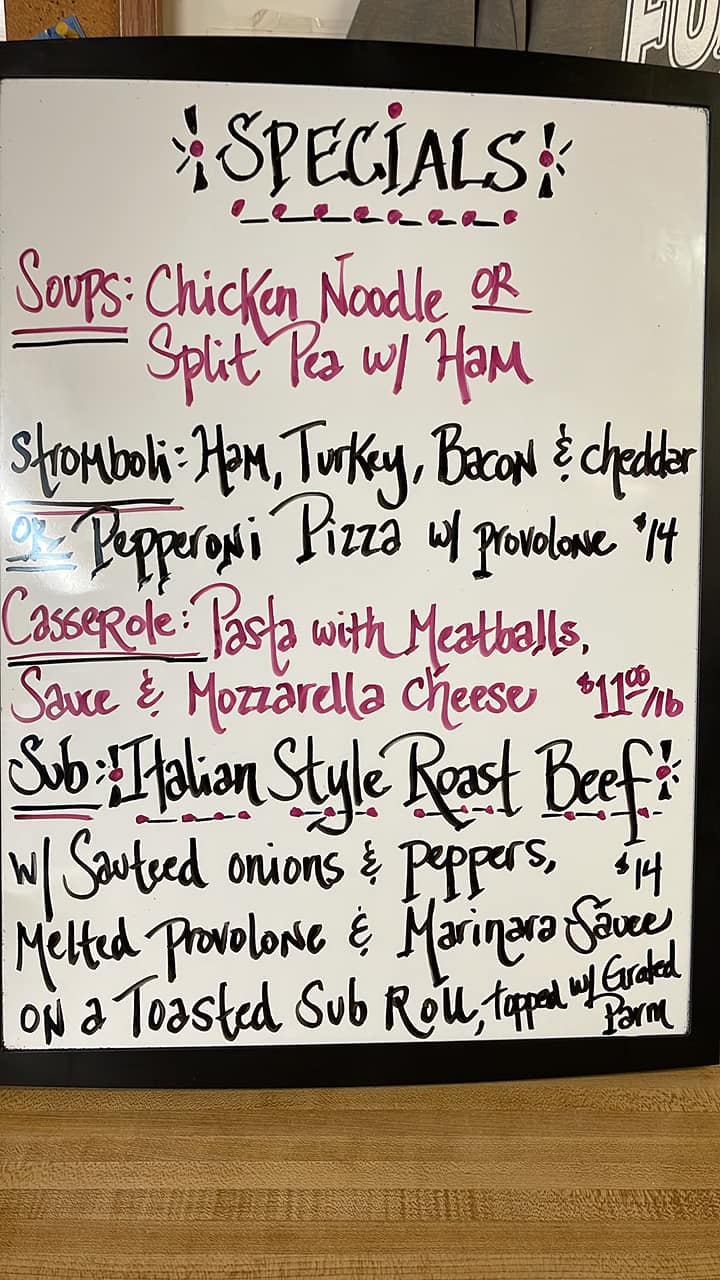 !SPECIALS!
Soups: Chicken Noodle OR
Split Pea w/ Ham
Stromboli: Ham, Turkey, Bacon & cheddar
OR Pepperoni Pizza w/ provolone $14
Casserole: Pasta with Meatballs,
Sauce & Mozzarella cheese $11.00/lb
Sub: !Italian Style Roast Beef!
w/ Sauteed onions & peppers, $14
Melted Provolone & Marinara Sauce
on a Toasted Sub Roll, topped w/ Grated
Parm